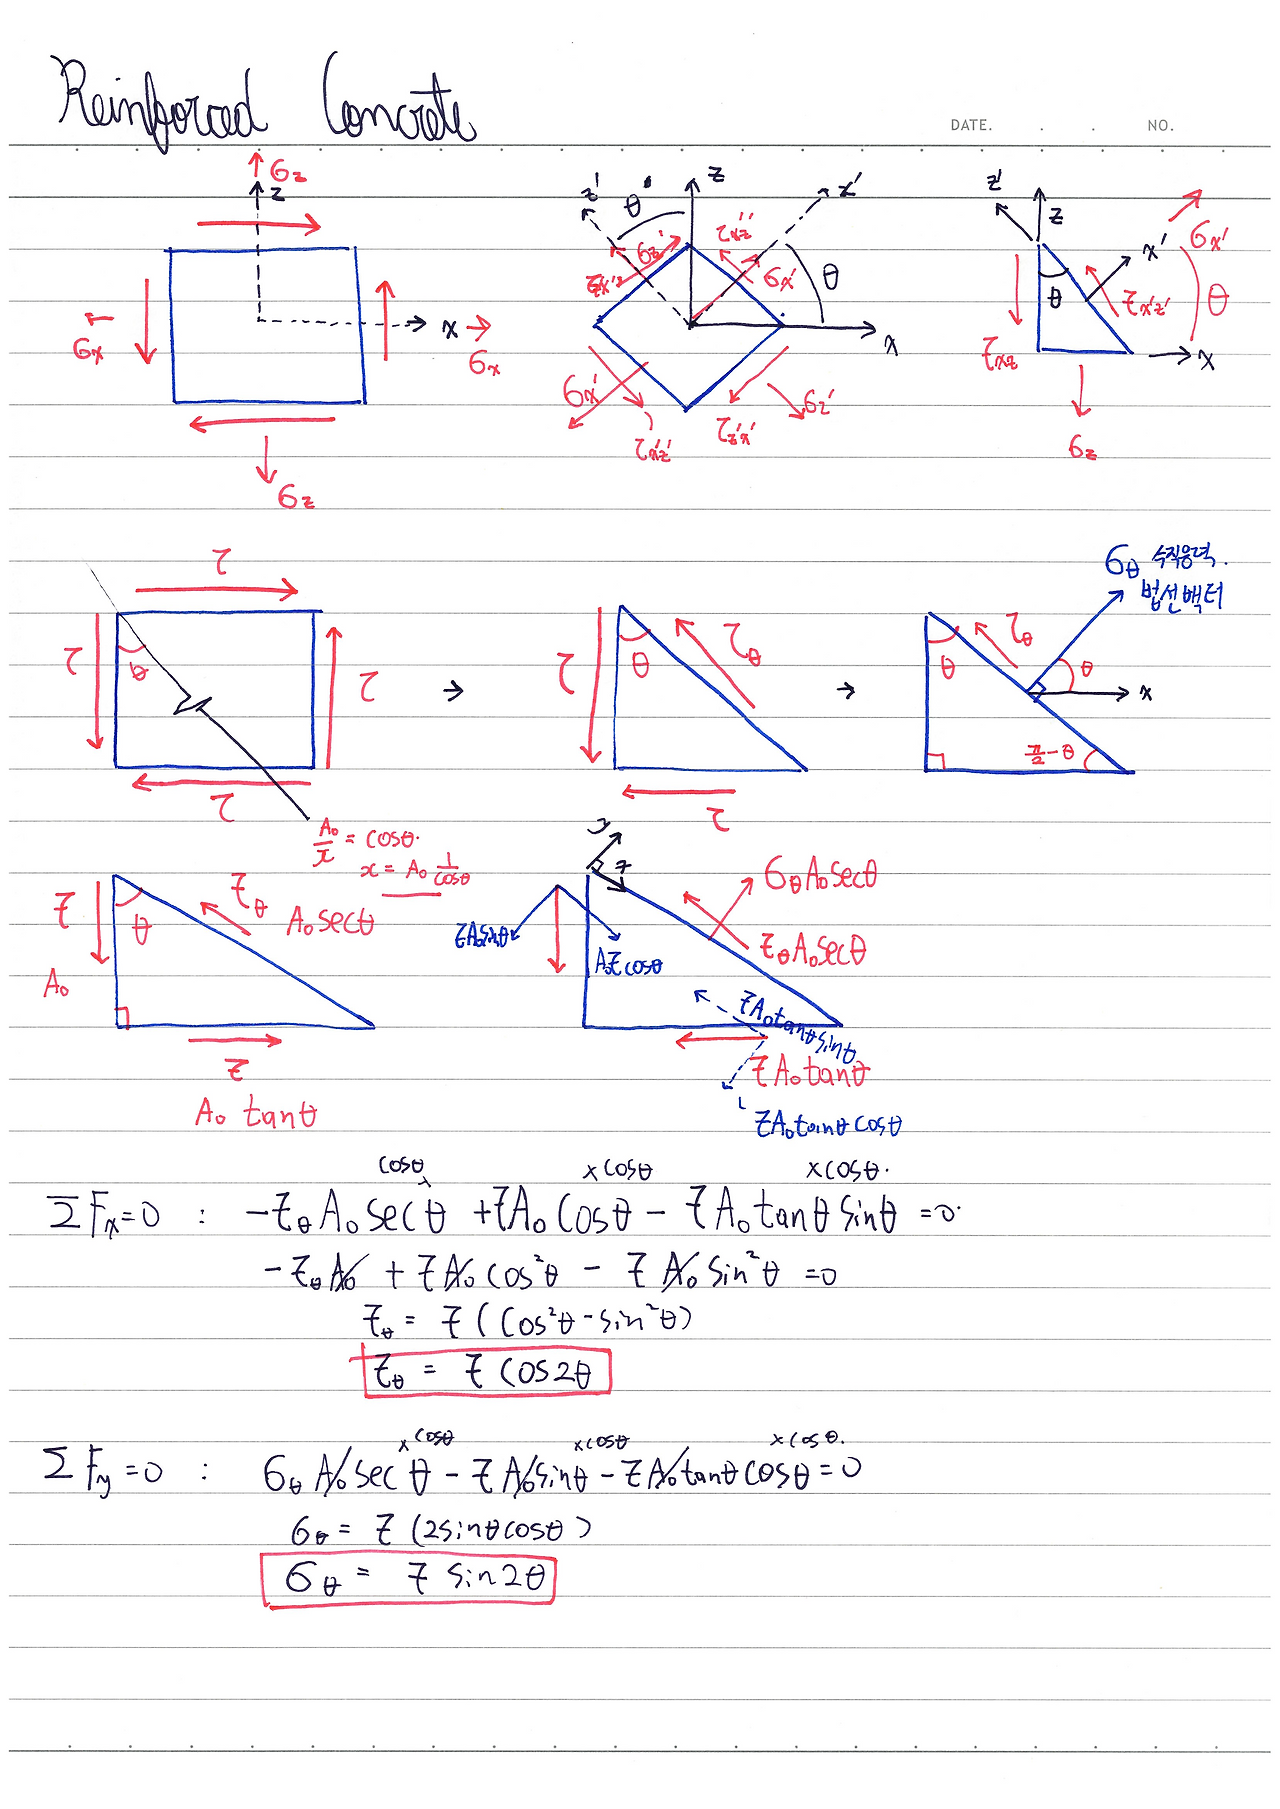 Reinforced Concrete
DATE. . . NO.
σz
z
σx
x
σx
σz
z'
θ
z
x'
σz'
τx'z'
τx'z'
σx'
θ
x
σx'
τx'z'
τz'x'
σz'
z'
z
x'
σx'
θ
τx'z'
θ
τxz
x
σz
τ
τ
θ
τ
τ
τ
θ
τθ
τ
σθ 수직응력.
법선벡터
τθ
θ
θ
x
π/2 - θ
A₀/x = cosθ.
x = A₀ 1/cosθ
τ
θ
τθ
A₀secθ
A₀
τ
A₀ tanθ
y
x
σθA₀secθ
τA₀sinθ
A₀τcosθ
τθA₀secθ
τA₀tanθsinθ
τA₀tanθ
τA₀tanθcosθ
cosθ xcosθ xcosθ.
ΣFx=0 : -τθA₀secθ +τA₀cosθ - τA₀tanθsinθ =0.
-τθA₀ + τA₀cos²θ - τA₀sin²θ =0
τθ = τ(cos²θ-sin²θ)
τθ = τ cos2θ
xcosθ xcosθ xcosθ.
ΣFy=0 : σθA₀secθ - τA₀sinθ - τA₀tanθcosθ=0
σθ = τ(2sinθcosθ)
σθ = τ sin2θ